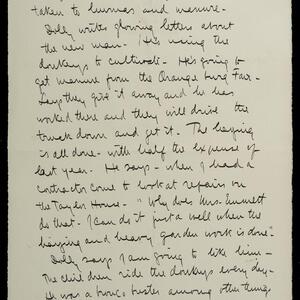 taken to humus and manure -
Dolly writes glowing letters about
the new man - He's using the
donkeys to cultivate - He's going to
get manure from the Orangeburg Fair -
Says they give it away and he has
worked there and they will drive the
truck down and get it - The haying
is all done - with half the expense of
last year. He says - when I had a
contractor come to look at repairs on
the Taylor House - "Why does Mrs. Emmett
do that - I can do it just as well when the
haying and heavy garden work is done"
Dolly says I am going to like him -
The children ride the donkeys every day -
He was a bronco buster among other things